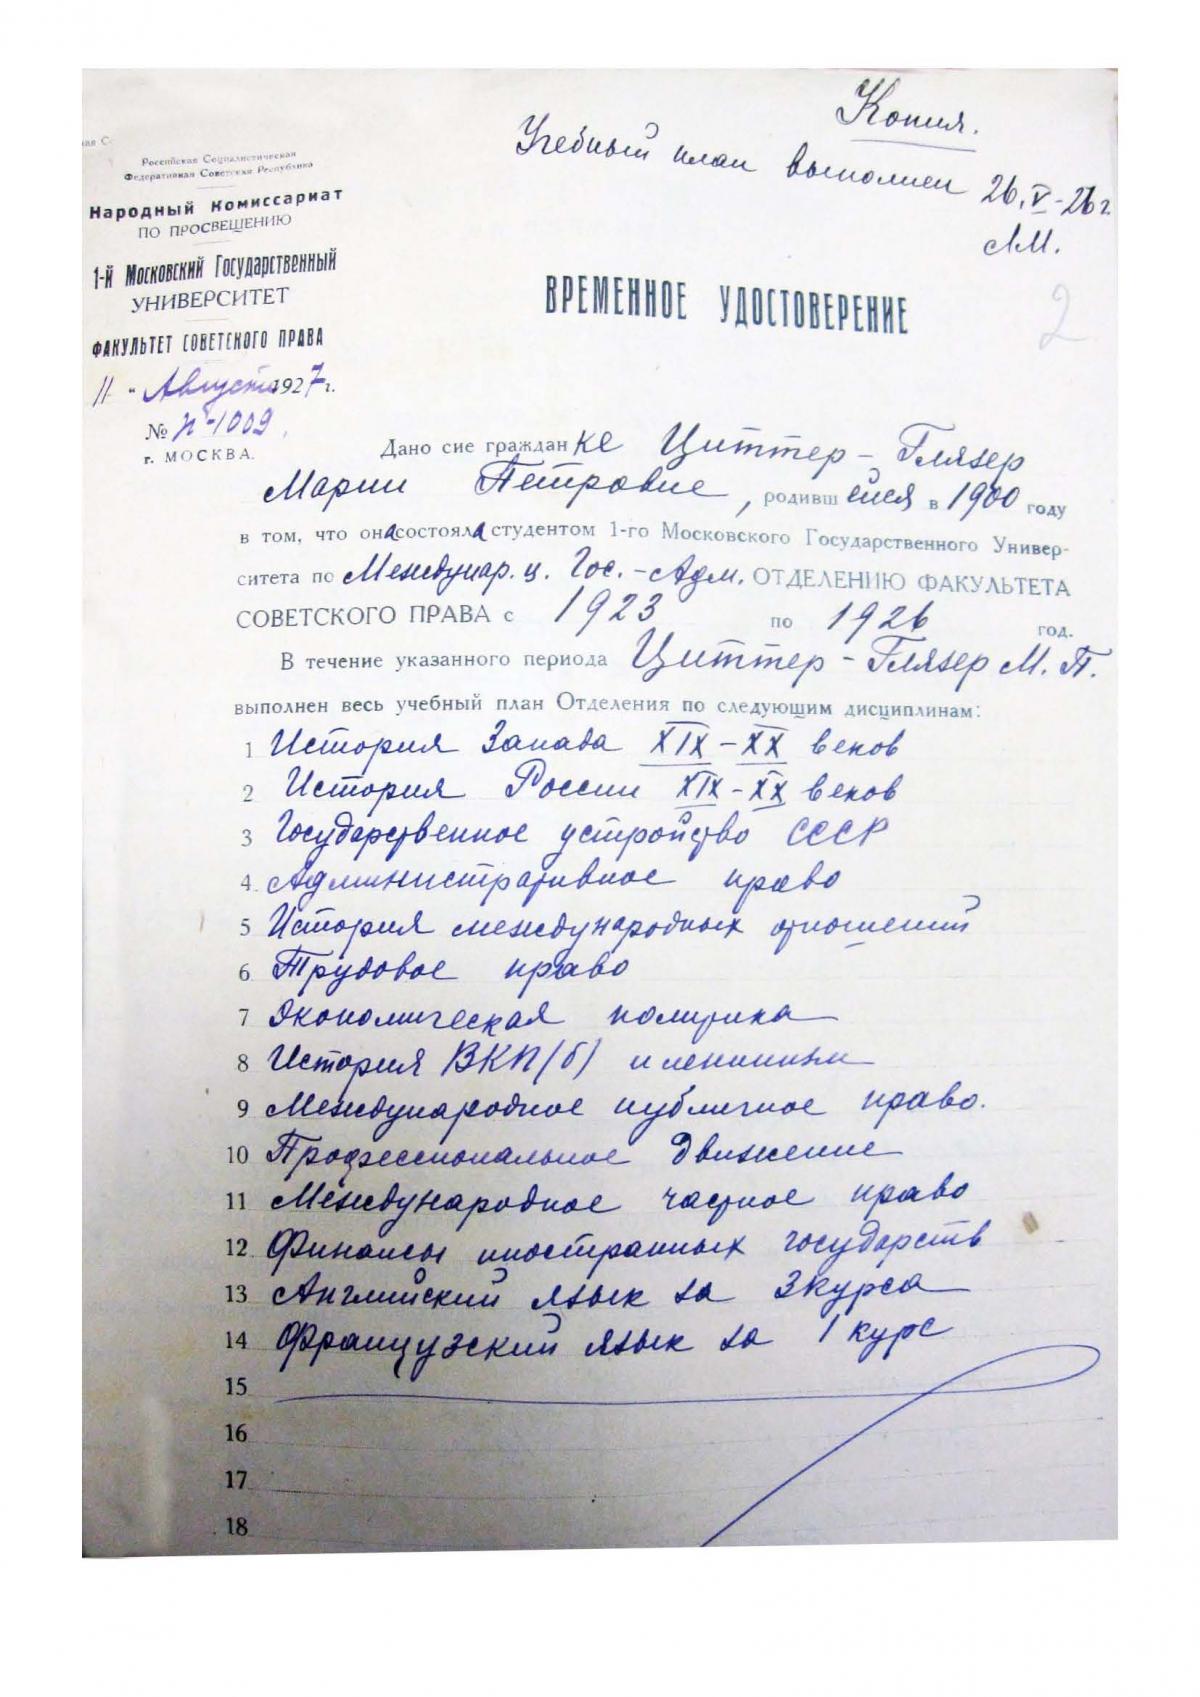 ная С
Российская Социалистическая
Федеративная Советская Республика
Народный Комиссариат
ПО ПРОСВЕЩЕНИЮ
1-й Московский Государственный
УНИВЕРСИТЕТ
ФАКУЛЬТЕТ СОВЕТСКОГО ПРАВА
11 " Августа 1927 г.
№ П-1009.
г. МОСКВА.
Копия.
Учебный план выполнен 26.V-26 г.
ЛМ.
2
ВРЕМЕННОЕ УДОСТОВЕРЕНИЕ
Дано сие гражданке Циттер-Глязер
Марии Петровне, родившейся в 1900 году
в том, что она состояла студентом 1-го Московского Государственного Универ-
ситета по Междунар. ц. Гос.-Адм. ОТДЕЛЕНИЮ ФАКУЛЬТЕТА
СОВЕТСКОГО ПРАВА с 1923 по 1926 год.
В течение указанного периода Циттер-Глязер М. П.
выполнен весь учебный план Отделения по следующим дисциплинам:
1 История Запада XIX-XX веков
2 История России XIX-XX веков
3 Государственное устройство СССР
4 Административное право
5 История международных отношений
6 Трудовое право
7 Экономическая политика
8 История ВКП(б) и ленинизм
9 Международное публичное право.
10 Профессиональное движение
11 Международное частное право
12 Финансы иностранных государств
13 Английский язык за 3 курса
14 Французский язык за 1 курс
15
16
17
18